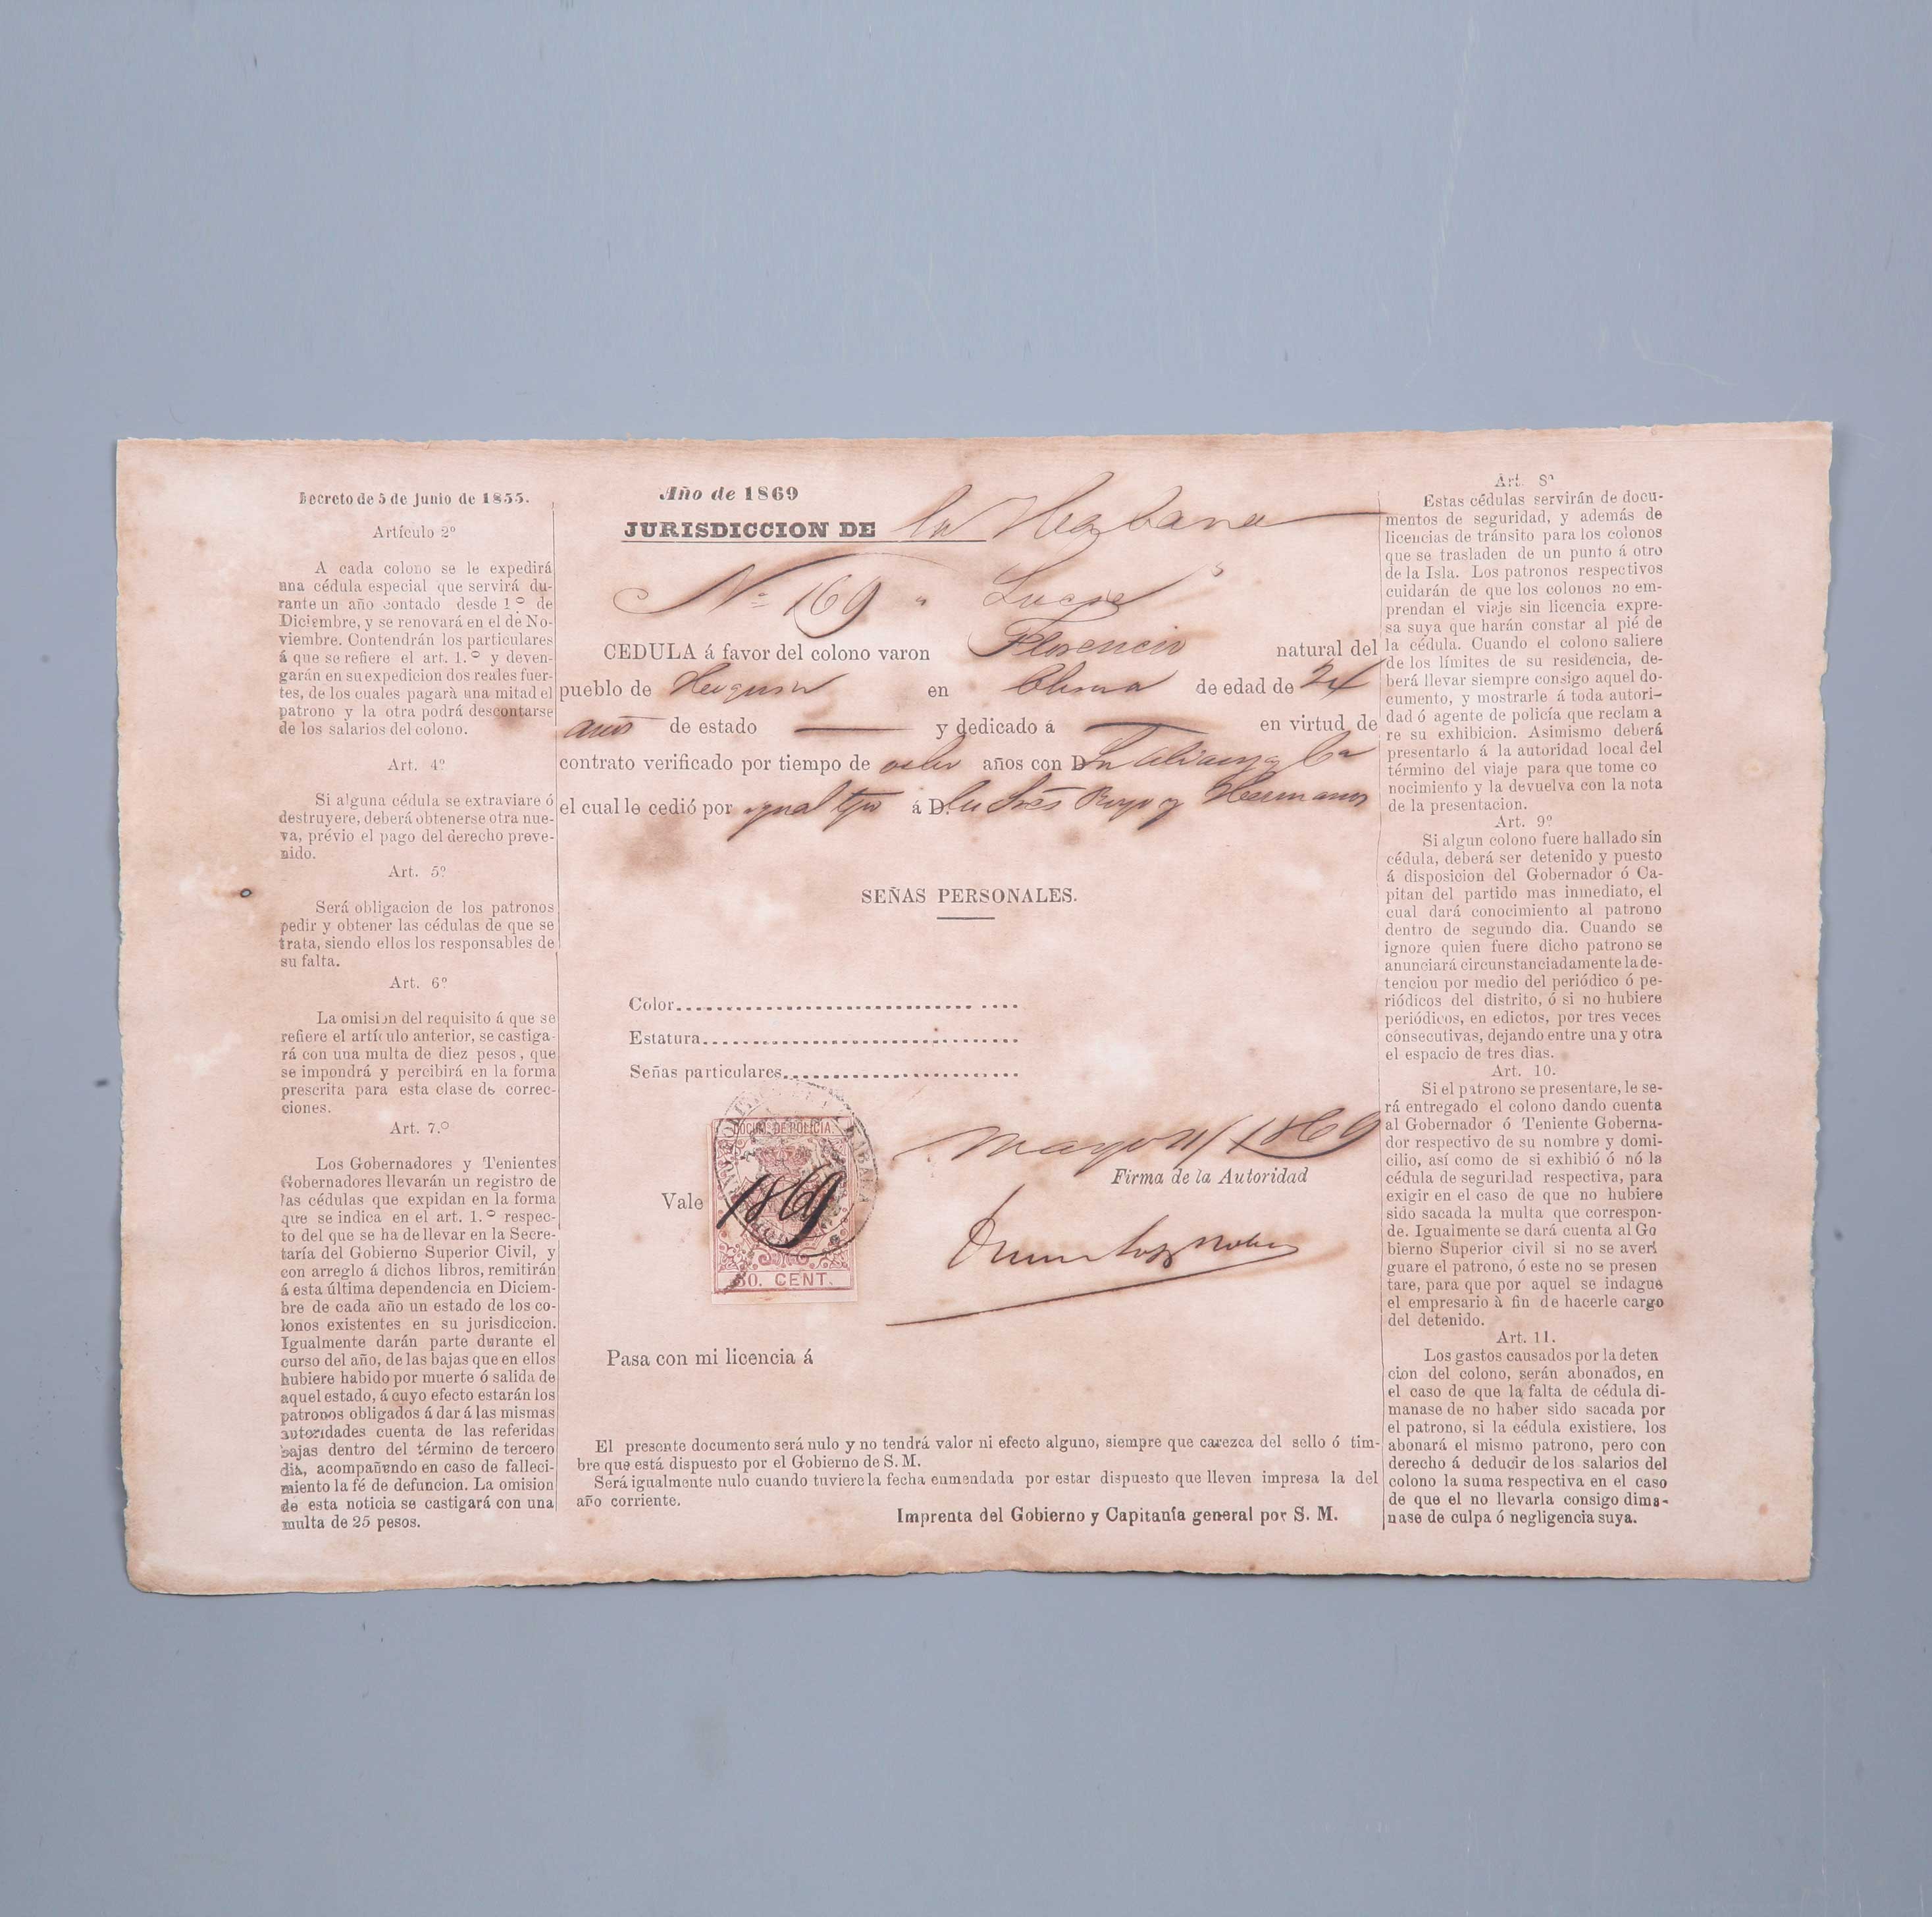 Decreto de 5 de Junio de 1855.
Artículo 2º
A cada colono se le expedirá
una cédula especial que servirá du-
rante un año contado desde 1º de
Diciembre, y se renovará en el de No-
viembre. Contendrán los particulares
á que se refiere el art. 1.º y deven-
garán en su expedicion dos reales fuer-
tes, de los cuales pagarà una mitad el
patrono y la otra podrá descontarse
de los salarios del colono.
Art. 4º
Si alguna cédula se extraviare ó
destruyere, deberá obtenerse otra nue-
va, prévio el pago del derecho preve-
nido.
Art. 5º
Será obligacion de los patronos
pedir y obtener las cédulas de que se
trata, siendo ellos los responsables de
su falta.
Art. 6º
La omision del requisito á que se
refiere el artículo anterior, se castiga-
rá con una multa de diez pesos, que
se impondrá y percibirá en la forma
prescrita para esta clase de correc-
ciones.
Art. 7.º
Los Gobernadores y Tenientes
Gobernadores llevarán un registro de
las cédulas que expidan en la forma
que se indica en el art. 1.º respec-
to del que se ha de llevar en la Secre-
taría del Gobierno Superior Civil, y
con arreglo á dichos libros, remitirán
á esta última dependencia en Diciem-
bre de cada año un estado de los co-
lonos existentes en su jurisdiccion.
Igualmente darán parte durante el
curso del año, de las bajas que en ellos
hubiere habido por muerte ó salida de
aquel estado, á cuyo efecto estarán los
patronos obligados á dar á las mismas
autoridades cuenta de las referidas
bajas dentro del término de tercero
dia, acompañando en caso de falleci-
miento la fé de defuncion. La omision
de esta noticia se castigará con una
multa de 25 pesos.
Año de 1869
JURISDICCION DE la Habana
Nº 169
CEDULA á favor del colono varon Florencio natural del
pueblo de en China de edad de 24
años de estado y dedicado á en virtud de
contrato verificado por tiempo de ocho años con D. La Alianza y Ca
el cual le cedió por igual tpo á D. Royo y Hermanos
SEÑAS PERSONALES.
Color
Estatura
Señas particulares
DOCUM. DE POLICIA.
Vale
1869
50. CENT.
mayo 11/1869
Firma de la Autoridad
Pasa con mi licencia á
El presente documento será nulo y no tendrá valor ni efecto alguno, siempre que carezca del sello ó tim-
bre que está dispuesto por el Gobierno de S. M.
Será igualmente nulo cuando tuviere la fecha enmendada por estar dispuesto que lleven impresa la del
año corriente.
Imprenta del Gobierno y Capitanía general por S. M.
Art. 8º
Estas cédulas servirán de docu-
mentos de seguridad, y además de
licencias de tránsito para los colonos
que se trasladen de un punto á otro
de la Isla. Los patronos respectivos
cuidarán de que los colonos no em-
prendan el viaje sin licencia expre-
sa suya que harán constar al pié de
la cédula. Cuando el colono saliere
de los límites de su residencia, de-
berá llevar siempre consigo aquel do-
cumento, y mostrarle á toda autori-
dad ó agente de policía que reclama
re su exhibicion. Asimismo deberá
presentarlo á la autoridad local del
término del viaje para que tome co
nocimiento y la devuelva con la nota
de la presentacion.
Art. 9º
Si algun colono fuere hallado sin
cédula, deberá ser detenido y puesto
á disposicion del Gobernador ó Ca-
pitan del partido mas inmediato, el
cual dará conocimiento al patrono
dentro de segundo dia. Cuando se
ignore quien fuere dicho patrono se
anunciará circunstanciadamente la de-
tencion por medio del periódico ó pe-
riódicos del distrito, ó si no hubiere
periódicos, en edictos, por tres veces
consecutivas, dejando entre una y otra
el espacio de tres dias.
Art. 10.
Si el patrono se presentare, le se-
rá entregado el colono dando cuenta
al Gobernador ó Teniente Goberna-
dor respectivo de su nombre y domi-
cilio, así como de si exhibió ó nó la
cédula de seguridad respectiva, para
exigir en el caso de que no hubiere
sido sacada la multa que correspon-
de. Igualmente se dará cuenta al Go
bierno Superior civil si no se averi
guare el patrono, ó este no se presen
tare, para que por aquel se indague
el empresario à fin de hacerle cargo
del detenido.
Art. 11.
Los gastos causados por la deten
cion del colono, serán abonados, en
el caso de que la falta de cédula di-
manase de no haber sido sacada por
el patrono, si la cédula existiere, los
abonará el mismo patrono, pero con
derecho á deducir de los salarios del
colono la suma respectiva en el caso
de que el no llevarla consigo dima-
nase de culpa ó negligencia suya.